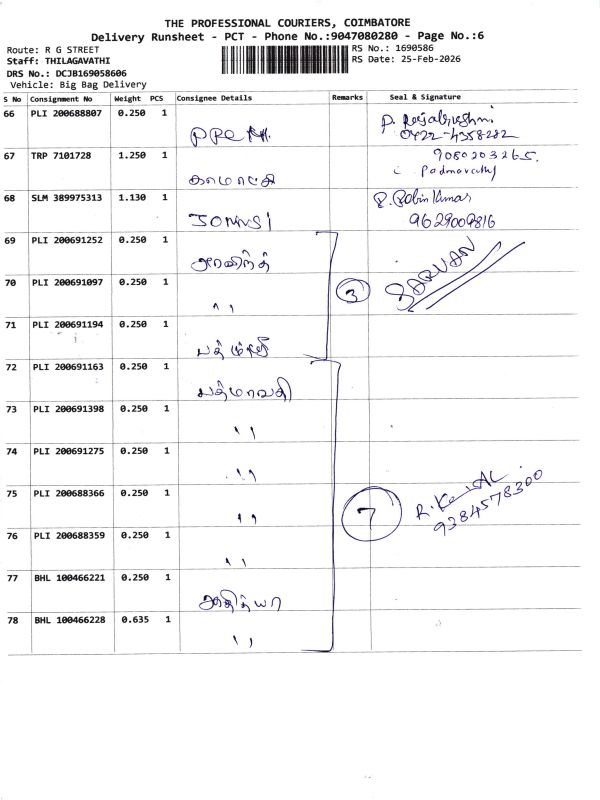 THE PROFESSIONAL COURIERS, COIMBATORE
Delivery Runsheet - PCT - Phone No.:9047080280 - Page No.:6
Route: R G STREET
RS No.: 1690586
Staff: THILAGAVATHI
RS Date: 25-Feb-2026
DRS No.: DCJB169058606
Vehicle: Big Bag Delivery
S No Consignment No Weight PCS Consignee Details Remarks Seal & Signature
66 PLI 200688807 0.250 1
PREM. 0422-4358282
67 TRP 7101728 1.250 1 9080203265.
காமாட்சி Padmavathy
68 SLM 389975313 1.130 1 R. Robin Kumar
9629009816
69 PLI 200691252 0.250 1
அரவிந்த் SARVAN
70 PLI 200691097 0.250 1 3
"
71 PLI 200691194 0.250 1
72 PLI 200691163 0.250 1
பத்மாவதி
73 PLI 200691398 0.250 1
"
74 PLI 200691275 0.250 1
"
75 PLI 200688366 0.250 1
" 7 9384578300
76 PLI 200688359 0.250 1
"
77 BHL 100466221 0.250 1
ஆதித்யா
78 BHL 100466228 0.635 1
"